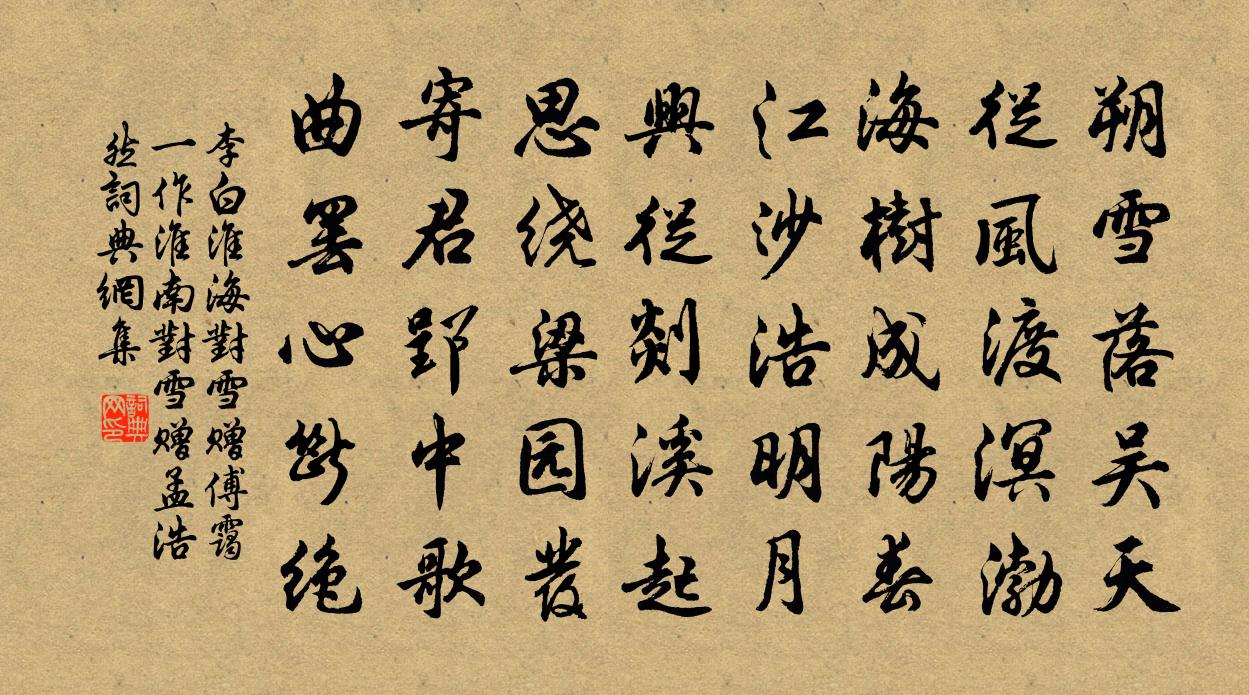 朔雪落吴天
從風渡溟渤
海樹成陽春
江沙浩明月
興從剡溪起
思绕梁园發
寄君郢中歌
曲罢心斷绝
李白淮海對雪赠傅靄
一作淮南對雪赠孟浩
然詞典網集
詞典
网印